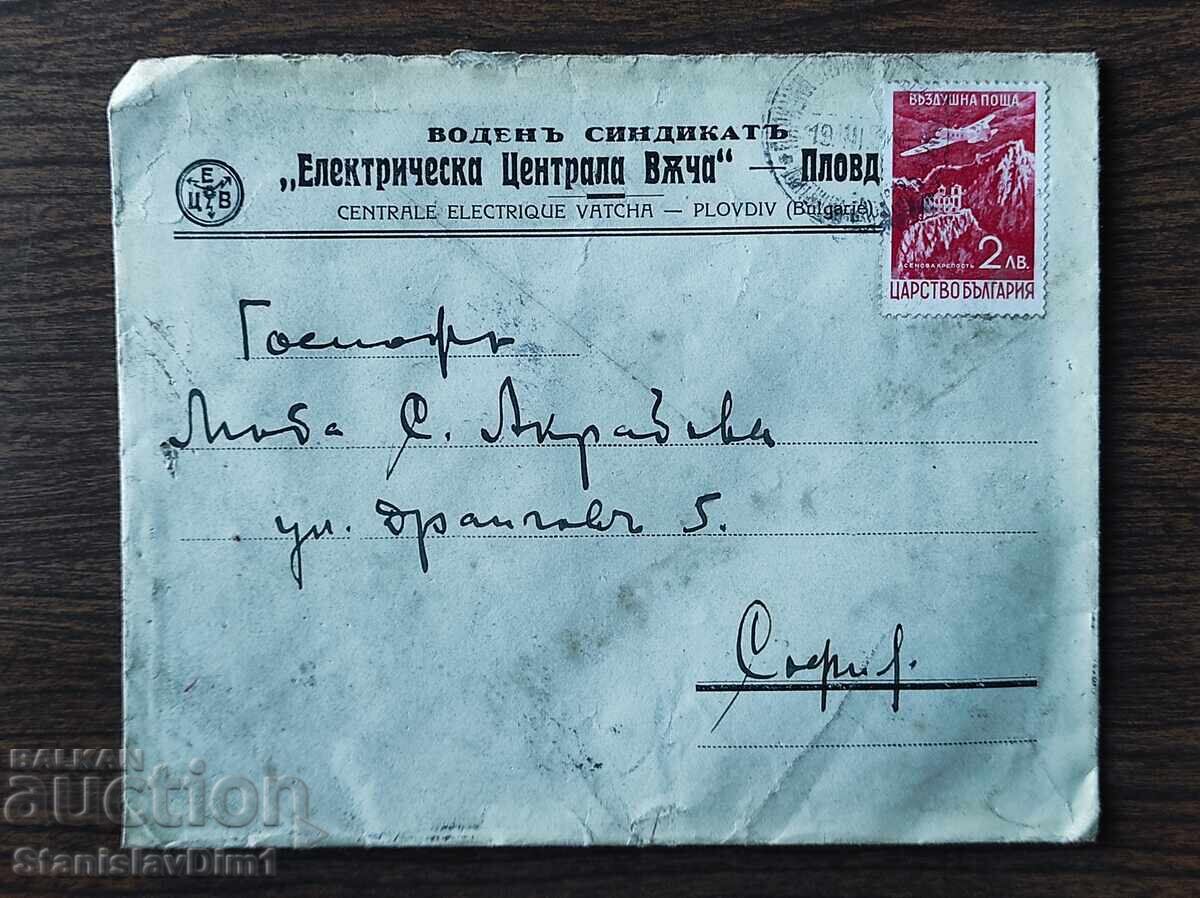 ВОДЕНЪ СИНДИКАТЪ
„Електрическа Централа Вѫча“ — Пловд
CENTRALE ELECTRIQUE VATCHA — PLOVDIV (Bulgarie)
Е
Ц В
19 III
ВЪЗДУШНА ПОЩА
АСЕНОВА КРЕПОСТЬ 2 ЛВ.
ЦАРСТВО БЪЛГАРИЯ
Госпожа
Люба С. Акрабова
ул. Драгговъ 5.
София.
BALKAN
auction
StanislavDim1